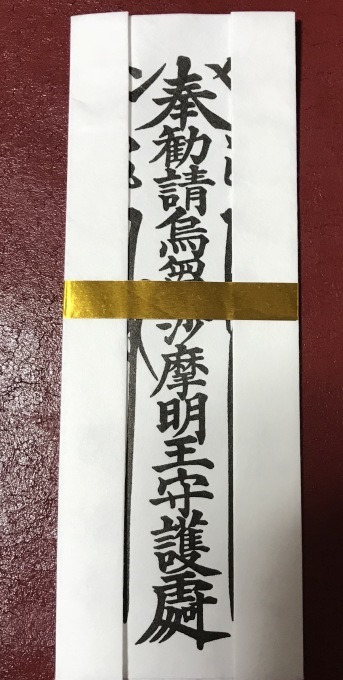 奉勧請烏芻沙摩明王守護處